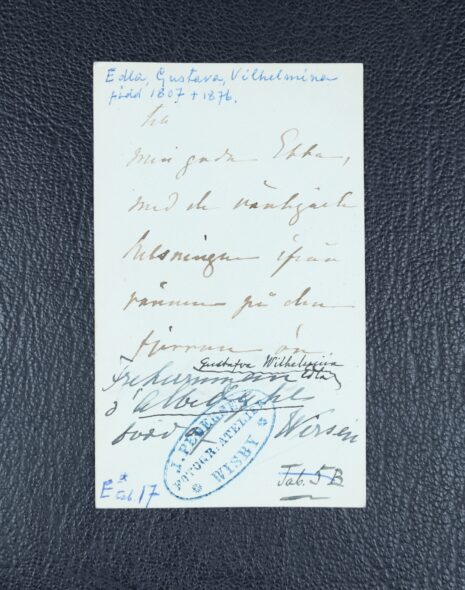 Edla, Gustava, Vilhelmina
född 1807 + 1876.
min goda Ebba,
med de
helsningar ifrån
vännen på den
fjerran ön
Gustafva Wilhelmina
Edla
Friherrinnan
född af Wirsén
J. PEDERSEN
FOTOGR. ATELIER
WISBY
Tab. 5 B
E 17